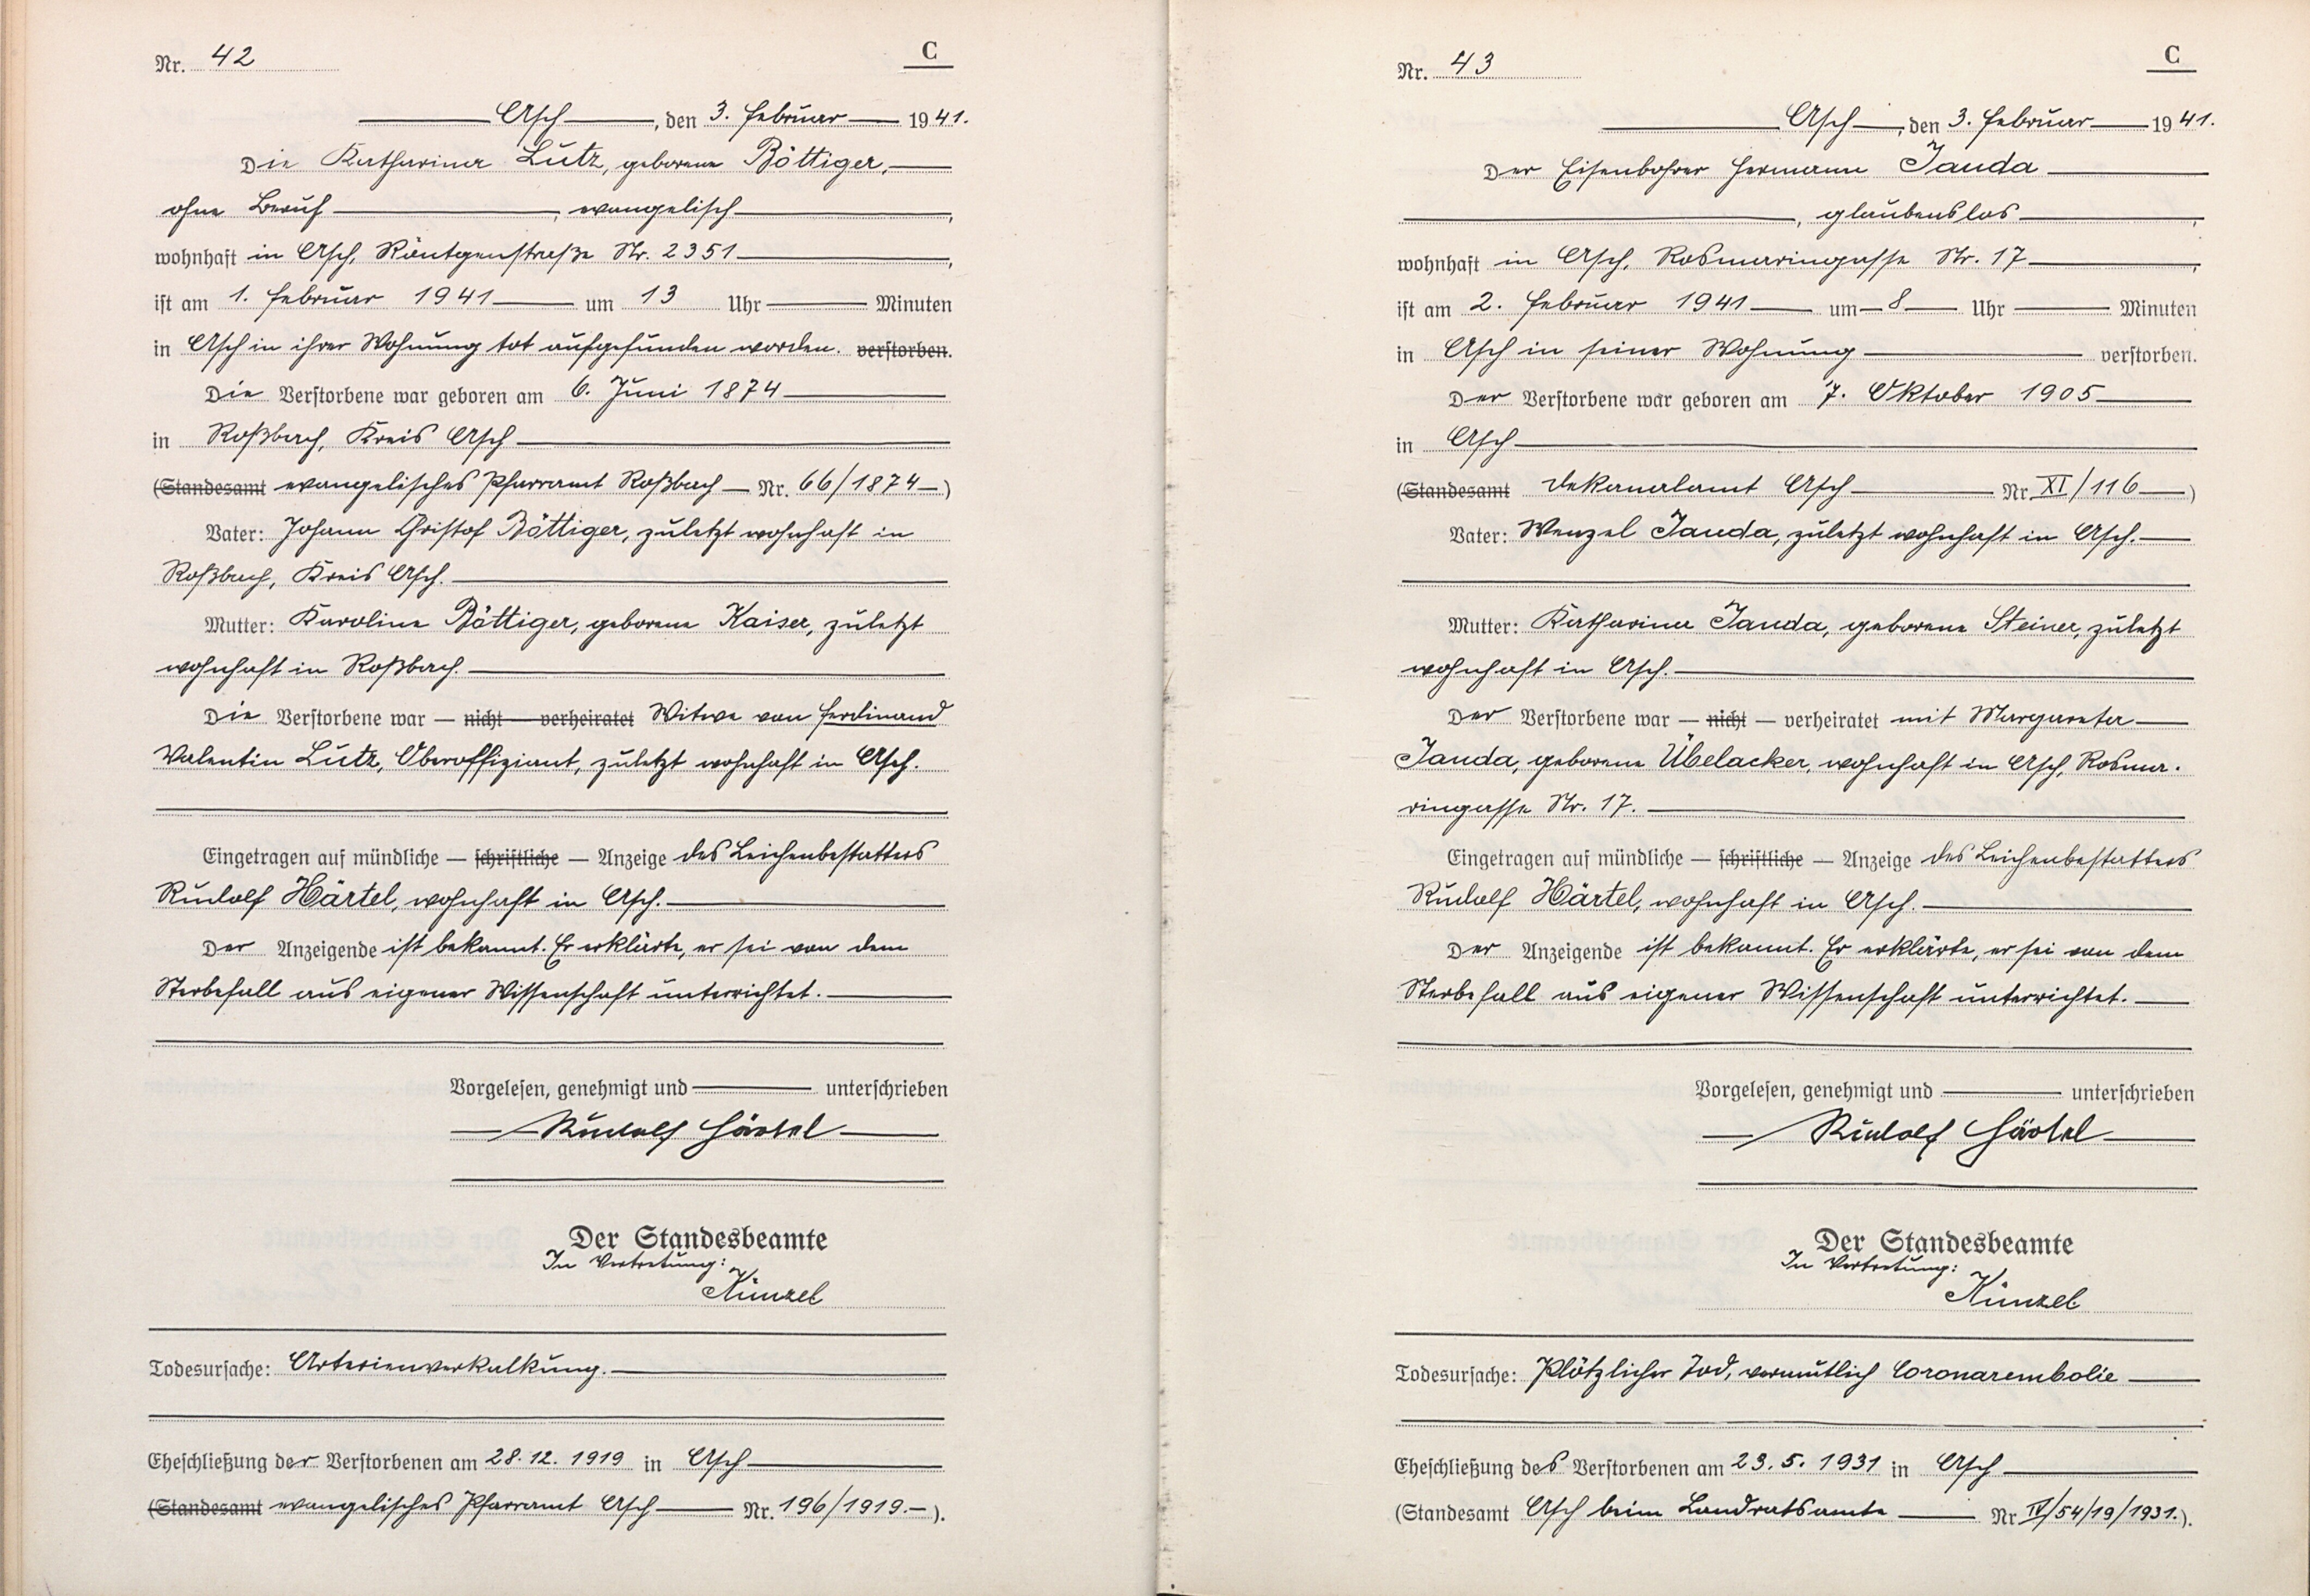 Nr. 42
C
Asch, den 3. Februar 1941.
Die Katharina Lutz, geborene Böttiger,
ohne Beruf, evangelisch,
wohnhaft in Asch, Röntgenstraße Nr. 2351,
ist am 1. Februar 1941 um 13 Uhr Minuten
in Asch in ihrer Wohnung tot aufgefunden worden. verstorben.
Die Verstorbene war geboren am 6. Juni 1874
in Roßbach, Kreis Asch
(Standesamt evangelisches Pfarramt Roßbach — Nr. 66/1874 —)
Vater: Johann Christof Böttiger, zuletzt wohnhaft in
Roßbach, Kreis Asch.
Mutter: Karoline Böttiger, geborene Kaiser, zuletzt
wohnhaft in Roßbach.
Die Verstorbene war — nicht — verheiratet Witwe von Ferdinand
Valentin Lutz, Oberoffiziant, zuletzt wohnhaft in Asch.
Eingetragen auf mündliche — schriftliche — Anzeige des Leichenbestatters
Rudolf Härtel, wohnhaft in Asch.
Der Anzeigende ist bekannt. Er erklärte, er sei von dem
Sterbefall aus eigener Wissenschaft unterrichtet.
Vorgelesen, genehmigt und unterschrieben
Rudolf Härtel
Der Standesbeamte
In Vertretung:
Künzel
Todesursache: Arterienverkalkung.
Eheschließung der Verstorbenen am 28.12.1919 in Asch
(Standesamt evangelisches Pfarramt Asch — Nr. 196/1919.—).
Nr. 43
C
Asch, den 3. Februar 1941.
Der Eisenbohrer Hermann Janda
, glaubenslos,
wohnhaft in Asch, Rosmaringasse Nr. 17,
ist am 2. Februar 1941 um 8 Uhr Minuten
in Asch in seiner Wohnung verstorben.
Der Verstorbene war geboren am 7. Oktober 1905
in Asch
(Standesamt Dekanalamt Asch — Nr. XI/116 —)
Vater: Wenzel Janda, zuletzt wohnhaft in Asch.
Mutter: Katharina Janda, geborene Steiner, zuletzt
wohnhaft in Asch.
Der Verstorbene war — nicht — verheiratet mit Margareta
Janda, geborene Übelacker, wohnhaft in Asch, Rosma-
ringasse Nr. 17.
Eingetragen auf mündliche — schriftliche — Anzeige des Leichenbestatters
Rudolf Härtel, wohnhaft in Asch.
Der Anzeigende ist bekannt. Er erklärte, er sei von dem
Sterbefall aus eigener Wissenschaft unterrichtet.
Vorgelesen, genehmigt und unterschrieben
Rudolf Härtel
Der Standesbeamte
In Vertretung:
Künzel
Todesursache: Plötzlicher Tod, vermutlich Coronarembolie
Eheschließung des Verstorbenen am 23.5.1931 in Asch
(Standesamt Asch beim Landratsamte — Nr. IV/54/19/1931.).